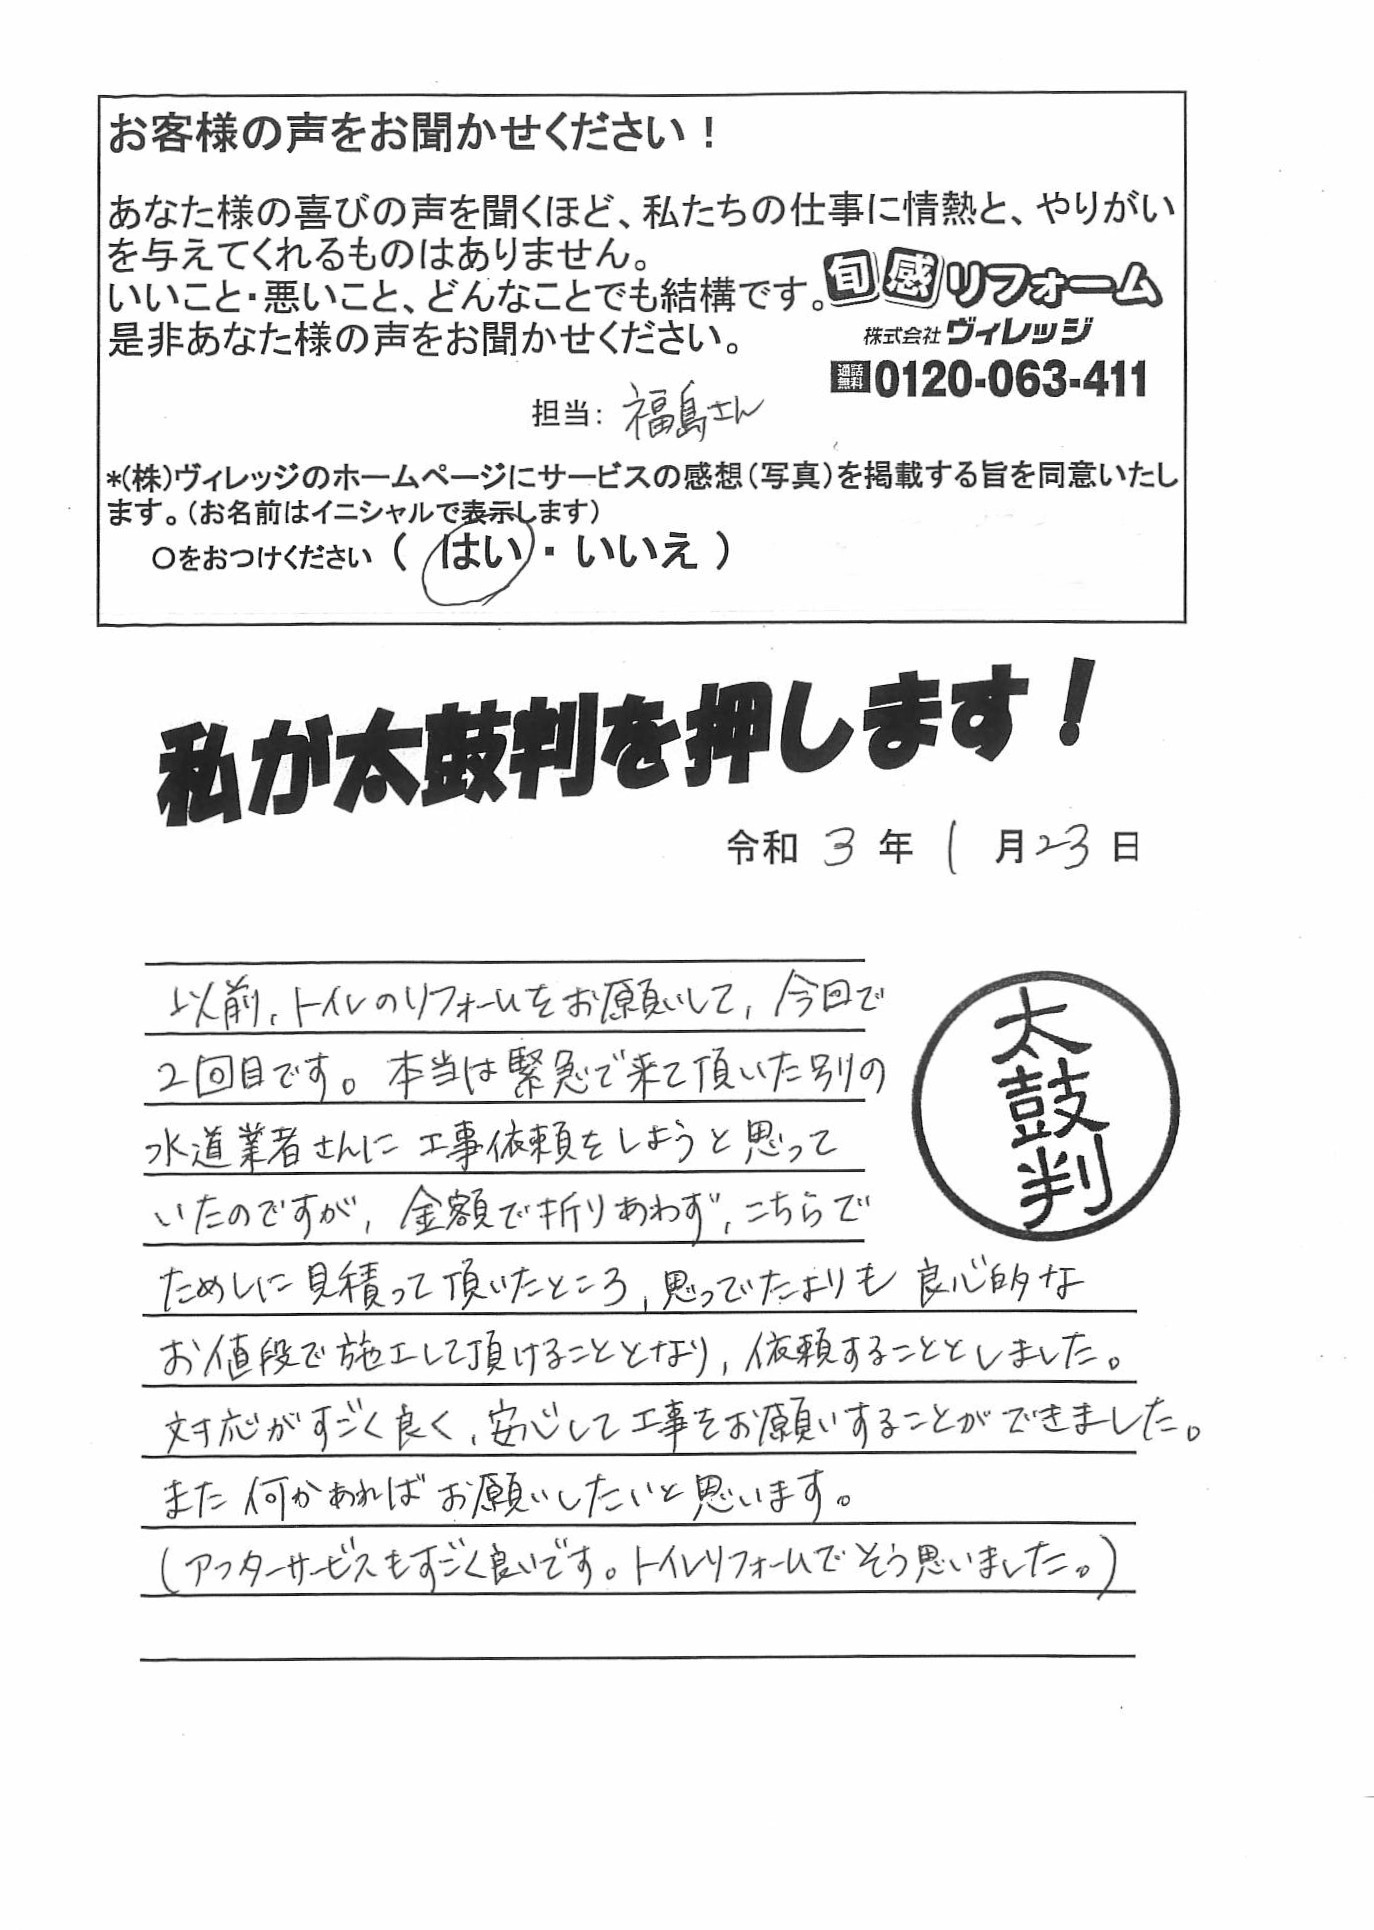 お客様の声をお聞かせください!
あなた様の喜びの声を聞くほど、私たちの仕事に情熱と、やりがい
を与えてくれるものはありません。
いいこと・悪いこと、どんなことでも結構です。
是非あなた様の声をお聞かせください。
旬感リフォーム
株式会社ヴィレッジ
通話無料 0120-063-411
担当: 福島さん
*(株)ヴィレッジのホームページにサービスの感想(写真)を掲載する旨を同意いたし
ます。(お名前はイニシャルで表示します)
○をおつけください ( はい ・ いいえ )
私が太鼓判を押します!
令和 3 年 1 月 23 日
以前、トイレのリフォームをお願いして、今回で
2回目です。本当は緊急で来て頂いた別の
水道業者さんに工事依頼をしようと思って
いたのですが、金額で折りあわず、こちらで
ためしに見積って頂いたところ、思ってたよりも良心的な
お値段で施工して頂けることとなり、依頼することとしました。
対応がすごく良く、安心して工事をお願いすることができました。
また何かあればお願いしたいと思います。
(アフターサービスもすごく良いです。トイレリフォームでそう思いました。)
太鼓判